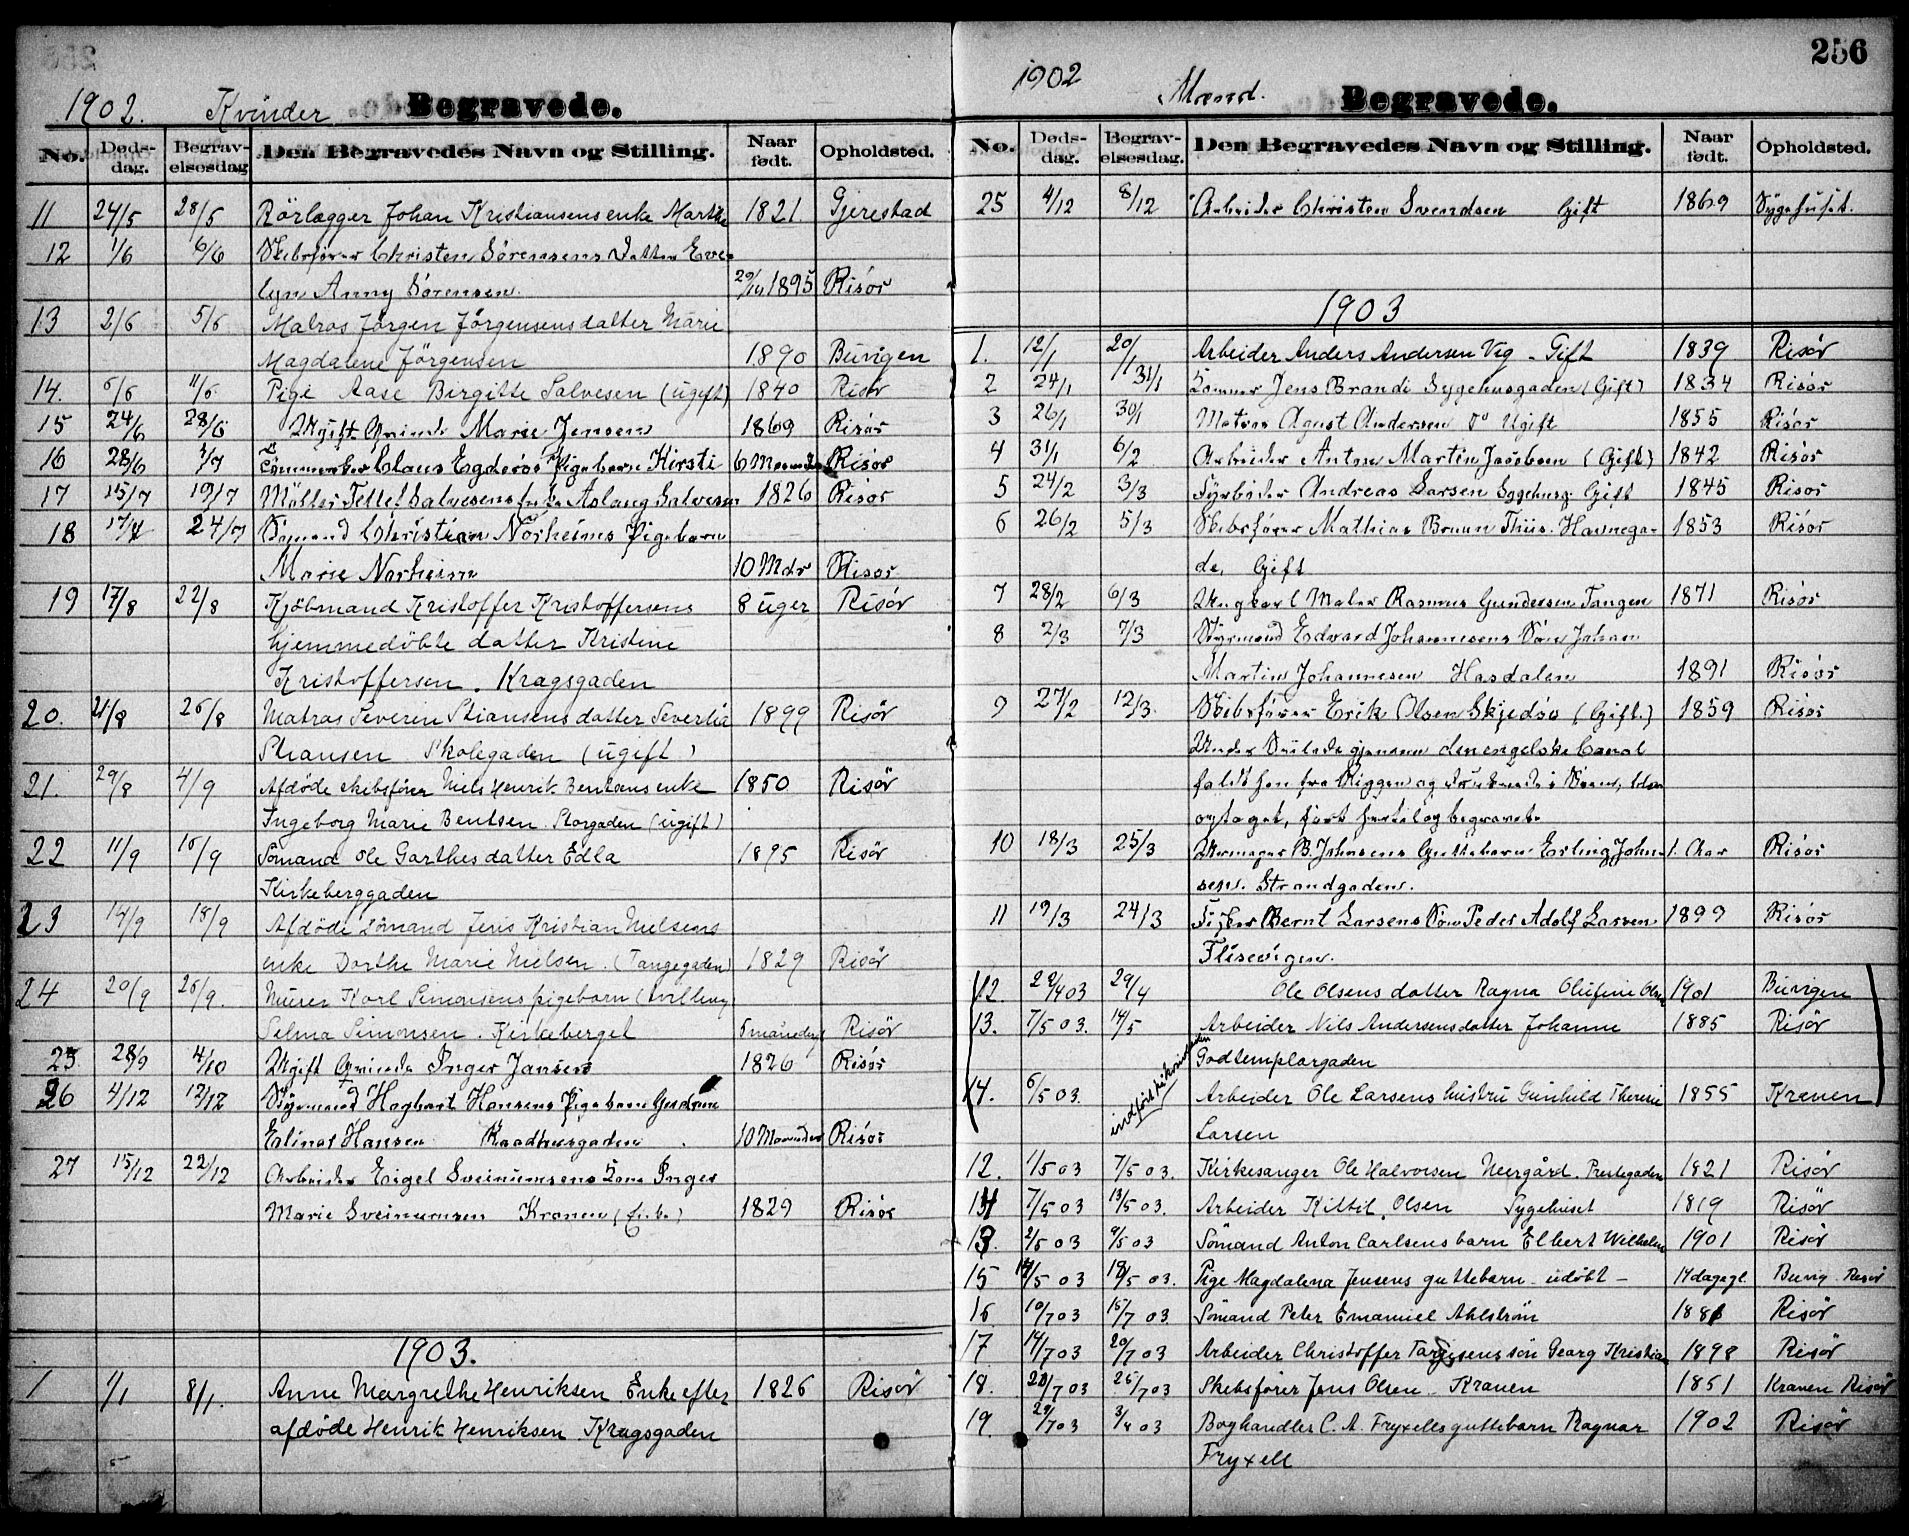 1902. Kvinder Begravede.
No. Døds-dag. Begrav-elsesdag Den Begravedes Navn og Stilling. Naar født. Opholdsted.
11 24/5 28/5 Rörlægger Johan Kristiansens enke Marthe 1821 Gjerestad
12 1/6 6/6 Skibsfører Christen Sörensens Datter Eve-
lyn Anny Sörensen 1895 Risör
13 2/6 5/6 Matros Jörgen Jörgensens datter Marie
Magdalene Jörgensen 1890 Buvigen
14. 5/6 11/6 Pige Aase Birgitte Salvesen (ugift) 1840 Risör
15 24/6 28/6 Ugift Qvinde Marie Jensen 1869 Risör
16 28/6 Claus Pigebarn Kirsti 6 Risör
17 15/7 19/7 Möller Tellef Salvesens Enke Aslaug Salvesen 1826 Risör
18 24/7 Sömand Christian Norheims Pigebarn
Marie Norheim 10 Mdr Risör
19 17/8 22/8 Kjöbmand Kristoffer Kristoffersens 8 uger Risör
hjemmedöbte datter Kristine
Kristoffersen. Kragsgaden
20. 21/8 26/8 Matros Severin Stiansens datter Severlia 1899 Risör
Stiansen Skolegaden (ugift)
21. 29/8 4/9 Afdöde skibsförer Niels Henrik Bentsens enke 1850 Risör
Ingeborg Marie Bentsen. Storgaden (ugift)
22 11/9 15/9 Sömand Ole Garthes datter Edla 1895 Risör
Kirkeberggaden
23 14/9 18/9 Afdöde sömand Jens Kristian Nielsens
enke Dorthe Marie Nielsen. (Tangegaden) 1829 Risör
24 20/9 26/9. Murer Karl Simonsens pigebarn (tvilling)
Selma Simonsen. Kirkeberget 5 maaneder Risör
25. 28/9 4/10 Ugift Qvinde Inger Jansen 1826 Risör
26 4/12 12/12 Styrmand Hagbart Hansens Pigebarn Gudrun
Hansen Raadhusgaden 10 Maaneder Risör
27 15/12 22/12 Arbeider Eigel Sveinumsens Kone Inger
Marie Sveinumsen Kranen 1829 Risör
1903.
1 1/1 8/1. Anne Margrethe Henriksen. Enke efter 1826 Risör
afdöde Henrik Henriksen. Kragsgaden
256
1902 Mænd. Begravede.
No. Døds-dag. Begrav-elsesdag. Den Begravedes Navn og Stilling. Naar født. Opholdsted.
25 4/12 8/12 Arbeider Christen Svendsen Gift 1869 Sygehuset.
1903
1. 12/1 20/1 Arbeider Anders Andersen Vig - Gift 1839 Risör
2 24/1 31/1 Tömmer Jens Brandi Sygehusgaden (Gift) 1834 Risör
3 26/1 30/1 Matros Agust Andersen Ugift 1855 Risör
4 31/1 6/2 Arbeider Anton Martin Jacobsen (Gift) 1842 Risör
5 24/2 3/3 Fyrböder Andreas Larsen Sygehusg. Gift 1845 Risör
6 26/2 5/3 Skibsfører Mathias Bruun Thiis. Havnega-
1853 Risör
de, Gift
7 28/2 6/3 Ungkarl Maler Rasmus Gundersen Tangen 1871 Risör
8 2/3 7/3 Styrmand Edvard Johannesens Sön Johan
Martin Johannesen Hasdalen 1891 Risör
9 27/2 12/3. Skibsfører Erik Olsen Skjedsö (Gift.) 1859 Risör
Under Seilads gjennem den engelske Canal
faldt han fra Riggen og druknede i Søen, blev
optaget, ført hertil og begravet.
10 18/3 25/3 Urmager B. Johnsens Guttebarn Erling John- 1. Aar Risör
sen. Strandgaden.
11 19/3 24/3 Fisker Bernt Larsens Sön Peder Adolf Larsen 1899 Risör
Flisevigen.
12. 22/4 03 29/4 Ole Olsens datter Ragna Olufine Olsen 1901 Buvigen
13. 7/5 03. 14/5 Arbeider Nils Andersens datter Johanne 1885 Risör
Godtemplargaden
indföst i kvinderaden
14. 6/5 03. Arbeider Ole Larsens hustru Gunhild Therese 1855 Kranen
Larsen
12. 1/5 03 7/5 03. Kirkesanger Ole Halvorsen Neergård. Prestegaden 1821 Risör
14 7/5 03 13/5 03. Arbeider Kittil Olsen Sygehuset 1819 Risör
13. 2/5 03 9/5 03 Sömand Anton Carlsens barn Elbert Wilhelm 1901 Risör
15 14/5 03 18/5 03. Pige Magdalena Jensens guttebarn - udöbt - 14 dage gl. Buvig. Risör
16 10/7 03 15/7 03 Sömand Peter Emanuel Ahlström 1881 Risör
17 14/7 03 20/7 03 Arbeider Christoffer Tarjesens sön Georg Kristian 1898 Risör
18. 20/7 03 25/7 03 Skibsförer Jens Olsen. Kranen 1851 Kranen Risör
19. 29/7 03 3/8 03 Boghandler C. A. Fryxells guttebarn Ragnar 1902 Risör
Fryxell